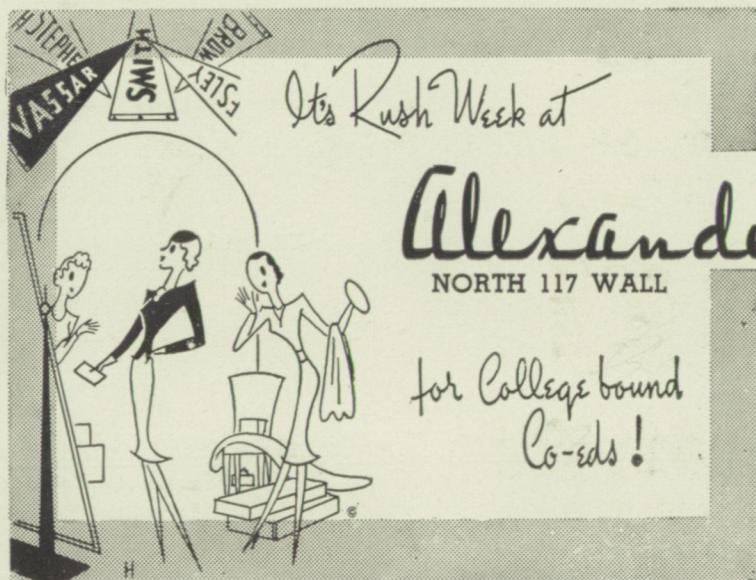 STEPHE
VASSAR
SMITH
ESLEY
BROW
It's Rush Week at
Alexande
NORTH 117 WALL
for College bound
Co-eds!
©
H